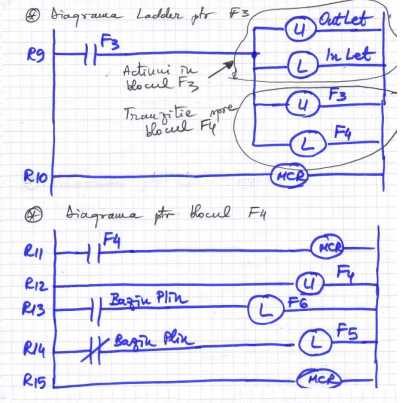 ⊛ Diagrama Ladder ptr F3
R9 F3 U OutLet
L InLet
Actiuni in
blocul F3
U F3
Tranzitie spre
blocul F4
L F4
R10 MCR
⊛ Diagrama ptr blocul F4
R11 F4 MCR
R12 U F4
R13 Bazin Plin L F6
R14 Bazin Plin L F5
R15 MCR